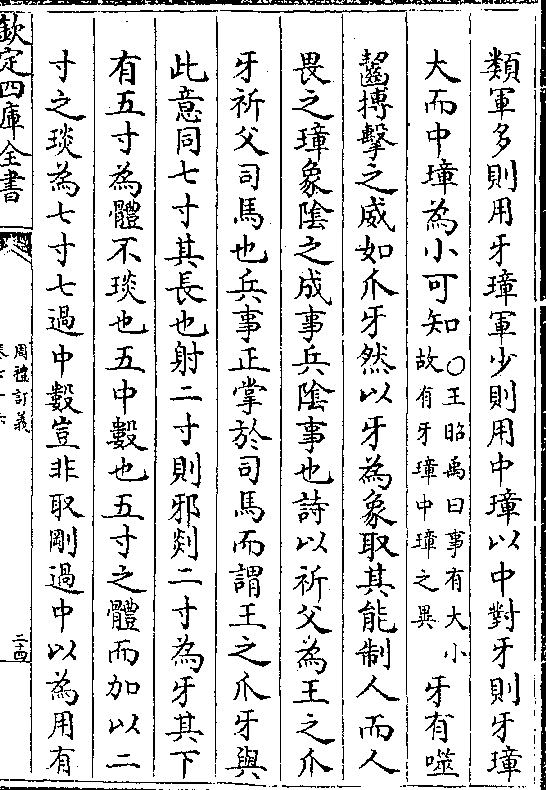 類軍多則用牙璋軍少則用中璋以中對牙則牙璋
大而中璋為小可知○王昭禹曰事有大小故有牙璋中璋之異牙有噬
齧搏擊之威如爪牙然以牙為象取其能制人而人
畏之璋象陰之成事兵陰事也詩以祈父為王之爪
牙祈父司馬也兵事正掌於司馬而謂王之爪牙與
此意同七寸其長也射二寸則邪剡二寸為牙其下
有五寸為體不琰也五中數也五寸之體而加以二
寸之琰為七寸七過中數豈非取剛過中以為用有
欽定四庫全書
周禮訂義
二十四